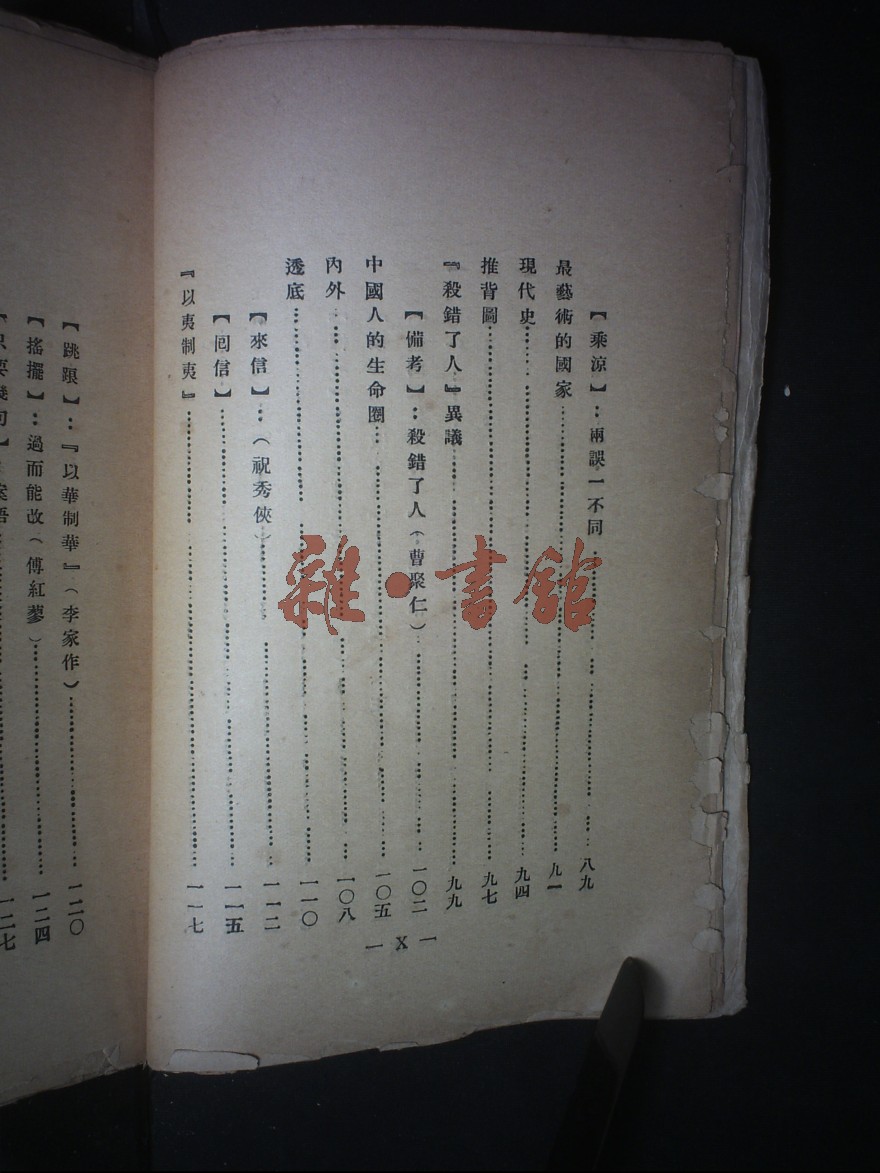 【乘涼】：兩誤一不同……八九
最藝術的國家……九一
現代史……九四
推背圖……九七
『殺錯了人』異議……九九
【備考】：殺錯了人（曹聚仁）……一〇二
中國人的生命圈……一〇五
內外……一〇八
透底……一一〇
【來信】：（祝秀俠）……一一二
【回信】……一一五
『以夷制夷』……一一七
— X —
【跳踉】：『以華制華』（李家作）……一二〇
【搖擺】：過而能改（傅紅蓼）……一二四
【只要幾句】：案語……一二七
雜·書館